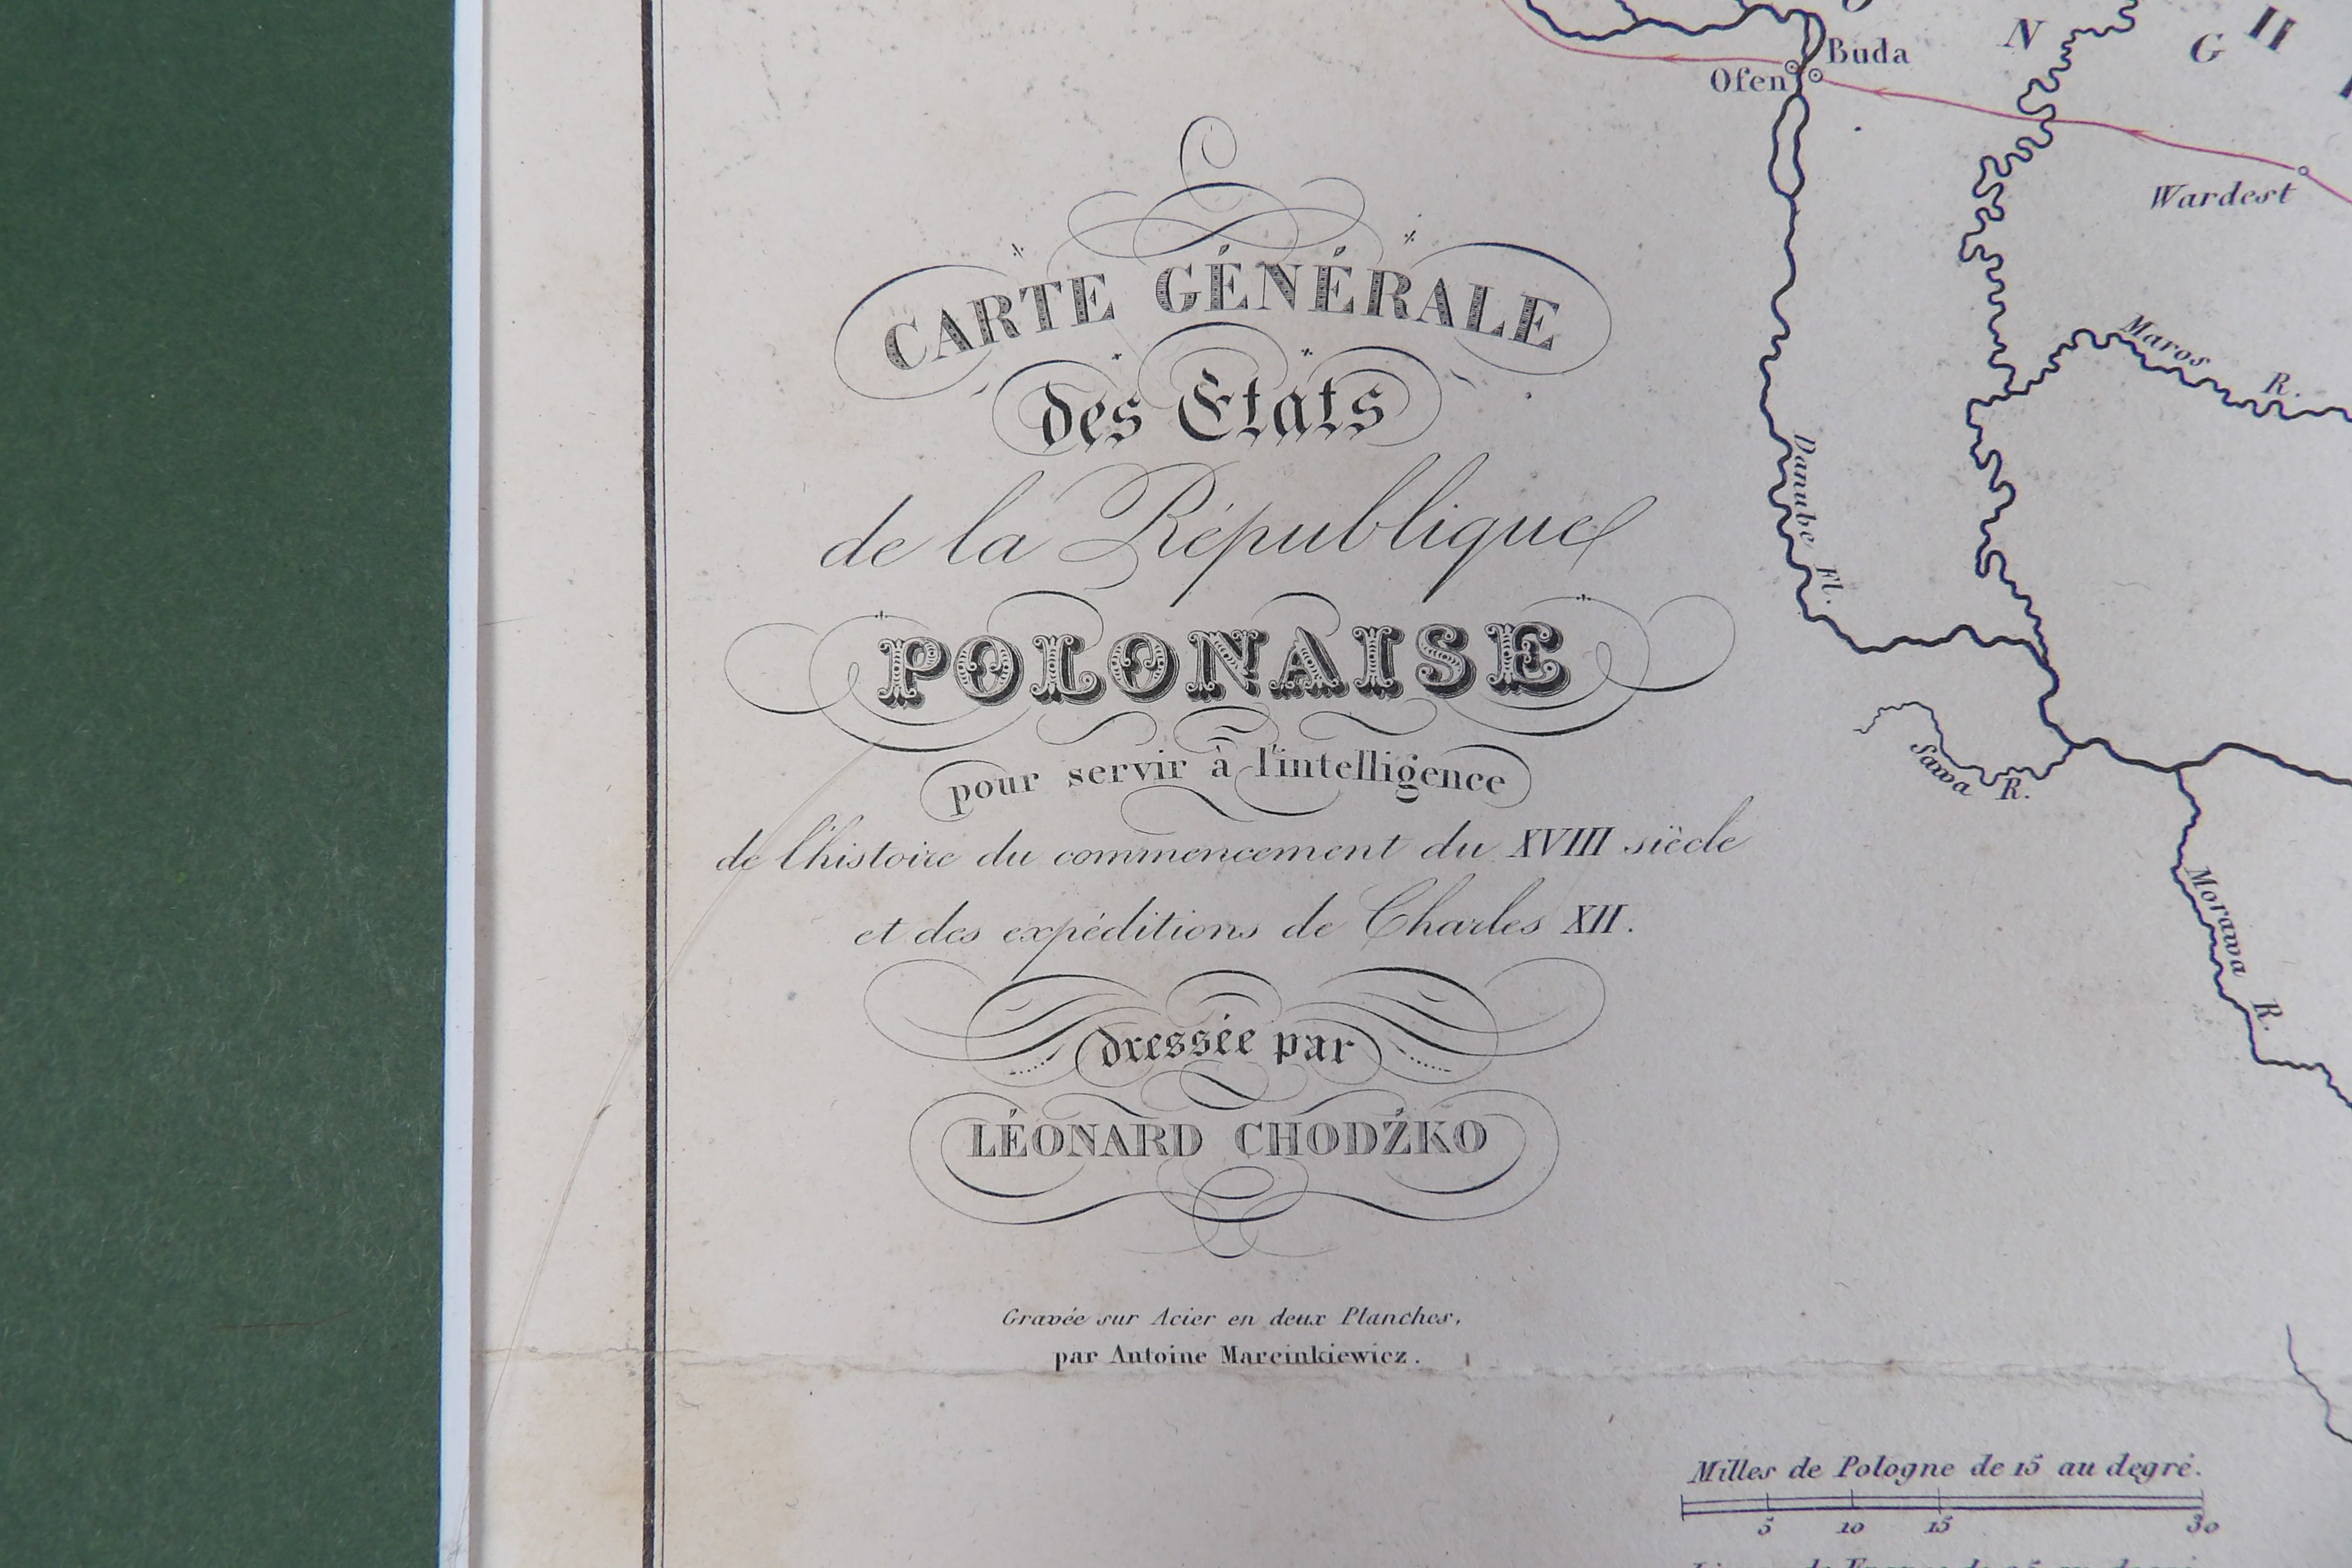 CARTE GÉNÉRALE
des Etats
de la République
POLONAISE
pour servir à l'intelligence
de l'histoire du commencement du XVIII siècle
et des expéditions de Charles XII.
dressée par
LÉONARD CHODŹKO
Gravée sur Acier en deux Planches,
par Antoine Marcinkiewicz.
Buda
Ofen
N
G
Wardest
Maros R.
Danube Fl.
Sawa R.
Morawa R.
Milles de Pologne de 15 au degré.
5 10 15 30